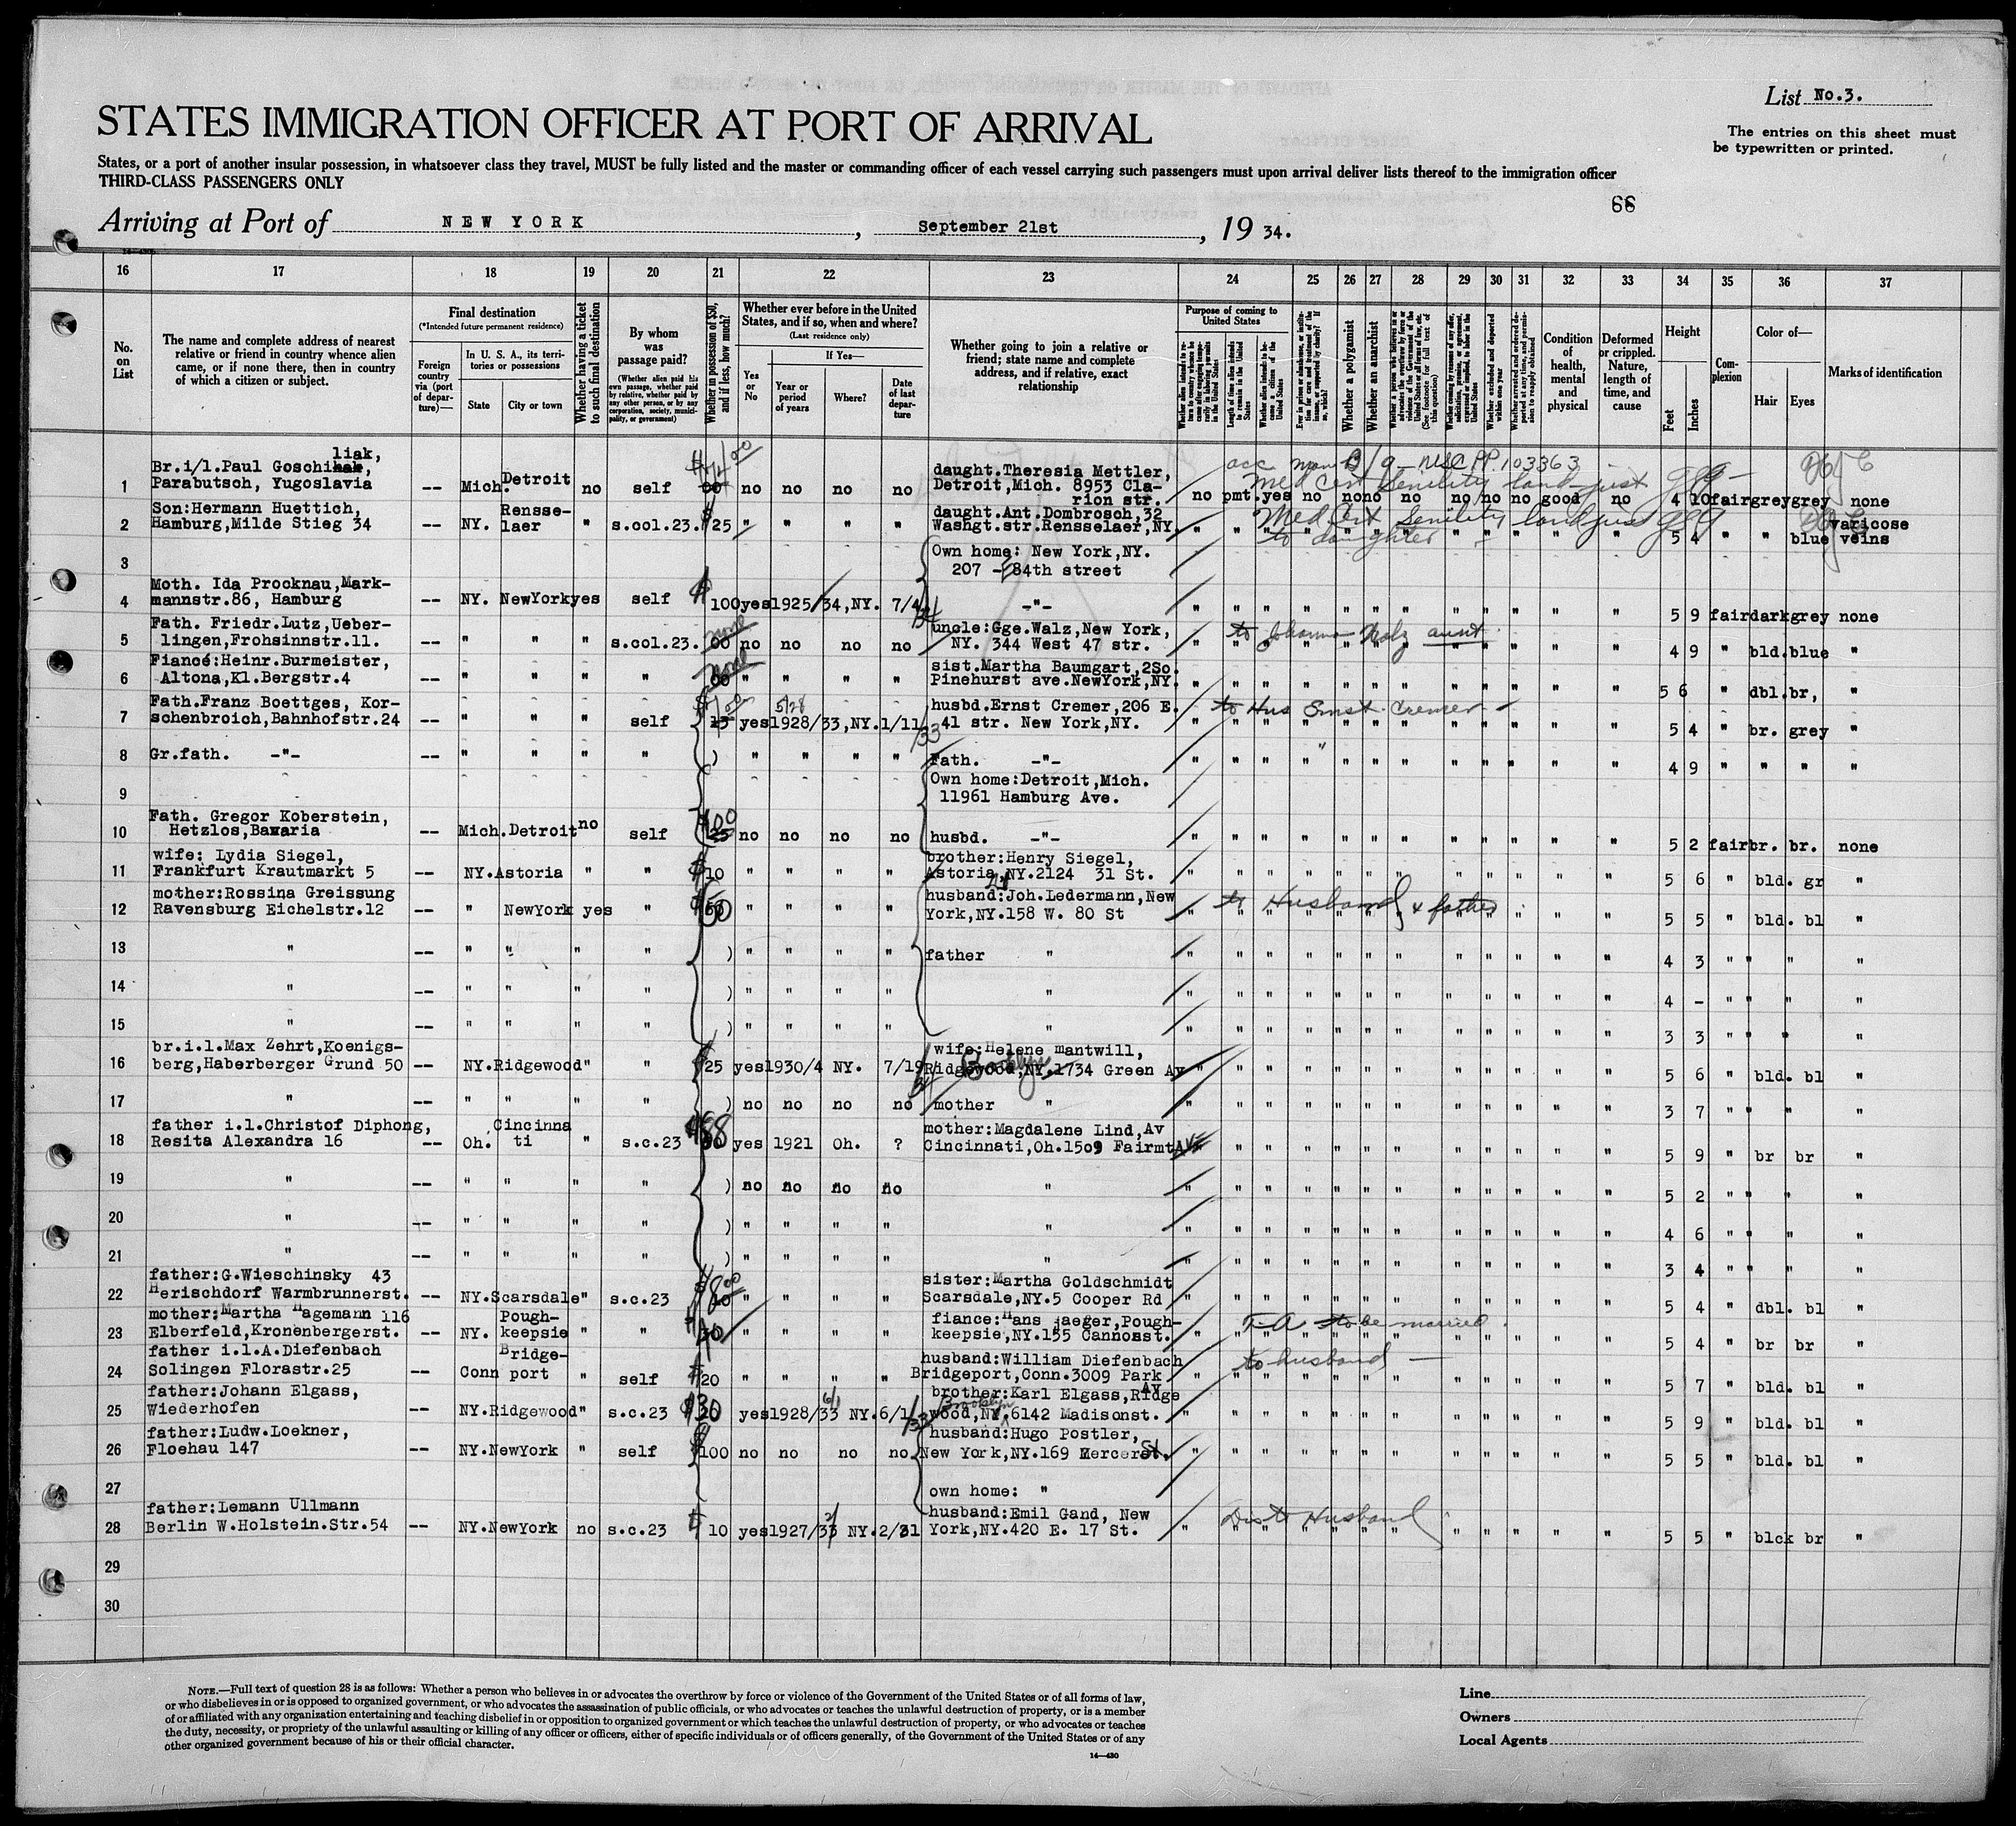 List No.3.
STATES IMMIGRATION OFFICER AT PORT OF ARRIVAL
The entries on this sheet must
be typewritten or printed.
States, or a port of another insular possession, in whatsoever class they travel, MUST be fully listed and the master or commanding officer of each vessel carrying such passengers must upon arrival deliver lists thereof to the immigration officer
THIRD-CLASS PASSENGERS ONLY
66
Arriving at Port of NEW YORK, September 21st, 19 34.
16 17 18 19 20 21 22 23 24 25 26 27 28 29 30 31 32 33 34 35 36 37
No. on List
The name and complete address of nearest relative or friend in country whence alien came, or if none there, then in country of which a citizen or subject.
Final destination
(*Intended future permanent residence)
Foreign country via (port of departure)—
In U. S. A., its territories or possessions
State
City or town
Whether having a ticket to such final destination
By whom was passage paid?
(Whether alien paid his own passage, whether paid by relative, whether paid by any other person, or by any corporation, society, municipality, or government)
Whether in possession of $50, and if less, how much?
Whether ever before in the United States, and if so, when and where?
(Last residence only)
Yes or No
If Yes—
Year or period of years
Where?
Date of last departure
Whether going to join a relative or friend; state name and complete address, and if relative, exact relationship
Purpose of coming to United States
Length of time alien intends to remain in the United States
Whether alien intends to become a citizen of the United States
Whether a polygamist
Whether an anarchist
Condition of health, mental and physical
Deformed or crippled. Nature, length of time, and cause
Height
Feet
Inches
Complexion
Color of—
Hair
Eyes
Marks of identification
liak,
acc man B/9 - NSC PP. 103363
Med Cert Senility land-just
1 Br.i/l.Paul Goschi Parabutsch, Yugoslavia -- Mich. Detroit no self no no no no daught.Theresia Mettler, Detroit,Mich. 8953 Clarion str. no pmt. yes no no no no no no no good no 4 10 fair grey grey none
Med Cert Senility land just
to daughter
2 Son:Hermann Huettich, Hamburg,Milde Stieg 34 -- NY. Rensselaer " s.col.23. $ 25 " " " " daught.Ant.Dombrosch,32 Washgt.str.Rensselaer,NY. " " " " " " " " " " " " 5 4 " " blue varicose veins
3 Own home: New York,NY. 207 - E 84th street
4 Moth. Ida Procknau,Markmannstr.86, Hamburg -- NY. NewYork yes self $ 100 yes 1925/34,NY. 7/4/34 -"- " " " " " " " " " " " " 5 9 fair dark grey none
5 Fath. Friedr.Lutz,Ueberlingen,Frohsinnstr.11. -- " " " s.col.23. none 00 no no no no uncle:Gge.Walz,New York, NY. 344 West 47 str. to Johanna Walz aunt 4 9 " bld. blue "
6 Fiancé:Heinr.Burmeister, Altona,Kl.Bergstr.4 -- " " " " none 00 " " " " sist.Martha Baumgart,2So. Pinehurst ave.NewYork,NY. " " " " " " " " " " " " 5 6 " dbl. br, "
7 Fath.Franz Boettges, Korschenbroich,Bahnhofstr.24 -- " " " self 15 yes 5/28 1928/33,NY. 1/11/33 husbd.Ernst Cremer,206 E. 41 str. New York,NY. to Hus Ernst Cremer 5 4 " br. grey "
8 Gr.fath. -"- -- " " " " ) " " " " Fath. -"- " " " " " " " " " " " " 4 9 " " " "
9 Own home:Detroit,Mich. 11961 Hamburg Ave.
10 Fath. Gregor Koberstein, Hetzlos,Bavaria -- Mich. Detroit no self 25 no no no no husbd. -"- " " " " " " " " " " " " 5 2 fair br. br. none
11 wife: Lydia Siegel, Frankfurt Krautmarkt 5 -- NY. Astoria " " $ 10 " " " " brother:Henry Siegel, Astoria,NY.2124 31 St. " " " " " " " " " " " " 5 6 " bld. gr "
12 mother:Rossina Greissung Ravensburg Eichelstr.12 -- " NewYork yes " $ 50 " " " " husband:Joh.Ledermann,New York,NY.158 W. 80 St to Husband & father 5 5 " bld. bl "
13 " -- " " " " ) " " " " father " " " " " " " " " " " " " 4 3 " " " "
14 " -- " " " " ) " " " " " " " " " " " " " " " " " 4 - " " " "
15 " -- " " " " ) " " " " " " " " " " " " " " " " " 3 3 " " " "
16 br.i.l.Max Zehrt,Koenigsberg,Haberberger Grund 50 -- NY. Ridgewood " " $ 25 yes 1930/4 NY. 7/19/34 wife:Helene mantwill, Brooklyn Ridgewood,NY.1734 Green Av " " " " " " " " " " " " 5 6 " bld. bl "
17 " -- " " " " ) no no no no mother " " " " " " " " " " " " " 3 7 " " " "
18 father i.l.Christof Diphong, Resita Alexandra 16 -- Oh. Cincinnati " s.c.23 $88 yes 1921 Oh. ? mother:Magdalene Lind,Av Cincinnati,Oh.1509 Fairmt " " " " " " " " " " " 5 9 " br br "
19 " -- " " " " ) no no no no " " " " " " " " " " " " " 5 2 " " " "
20 " -- " " " " ) " " " " " " " " " " " " " " " " " 4 6 " " " "
21 " -- " " " " ) " " " " " " " " " " " " " " " " " 3 4 " " " "
22 father:G.Wieschinsky 43 Herischdorf Warmbrunnerst. -- NY. Scarsdale " s.c.23 " " " " sister:Martha Goldschmidt Scarsdale,NY.5 Cooper Rd " " " " " " " " " " " " 5 4 " dbl. bl "
23 mother:Martha Hagemann 116 Elberfeld,Kronenbergerst. -- NY. Poughkeepsie " " " " " " fiance:Hans jaeger,Poughkeepsie,NY.155 Cannonst. T-A to be married 5 4 " br br "
24 father i.l.A.Diefenbach Solingen Florastr.25 -- Conn Bridgeport " self $ 20 " " " " husband:William Diefenbach Bridgeport,Conn.3009 Park Av to husband 5 7 " bld. bl "
25 father:Johann Elgass, Wiederhofen -- NY. Ridgewood " s.c.23 $30 yes 1928/33 NY. 6/1/33 brother:Karl Elgass,Ridgewood,NY.6142 Madisonst. Brooklyn " " " " " " " " " " " " 5 9 " bld. bl "
26 father:Ludw.Loekner, Floehau 147 -- NY. NewYork " self $ 100 no no no no husband:Hugo Postler, New York,NY.169 Mercer St. " " " " " " " " " " " " 5 5 " bld. bl "
27 own home: "
28 father:Lemann Ullmann Berlin W.Holstein.Str.54 -- NY. NewYork no s.c.23 $ 10 yes 1927/33 NY. 2/31 husband:Emil Gand, New York,NY.420 E. 17 St. Dis to Husband 5 5 " blck br "
29
30
NOTE.—Full text of question 28 is as follows: Whether a person who believes in or advocates the overthrow by force or violence of the Government of the United States or of all forms of law,
or who disbelieves in or is opposed to organized government, or who advocates the assassination of public officials, or who advocates or teaches the unlawful destruction of property, or is a member
of or affiliated with any organization entertaining and teaching disbelief in or opposition to organized government or which teaches the unlawful destruction of property, or who advocates or teaches
the duty, necessity, or propriety of the unlawful assaulting or killing of any officer or officers, either of specific individuals or of officers generally, of the Government of the United States or of any
other organized government because of his or their official character.
14—430
Line
Owners
Local Agents